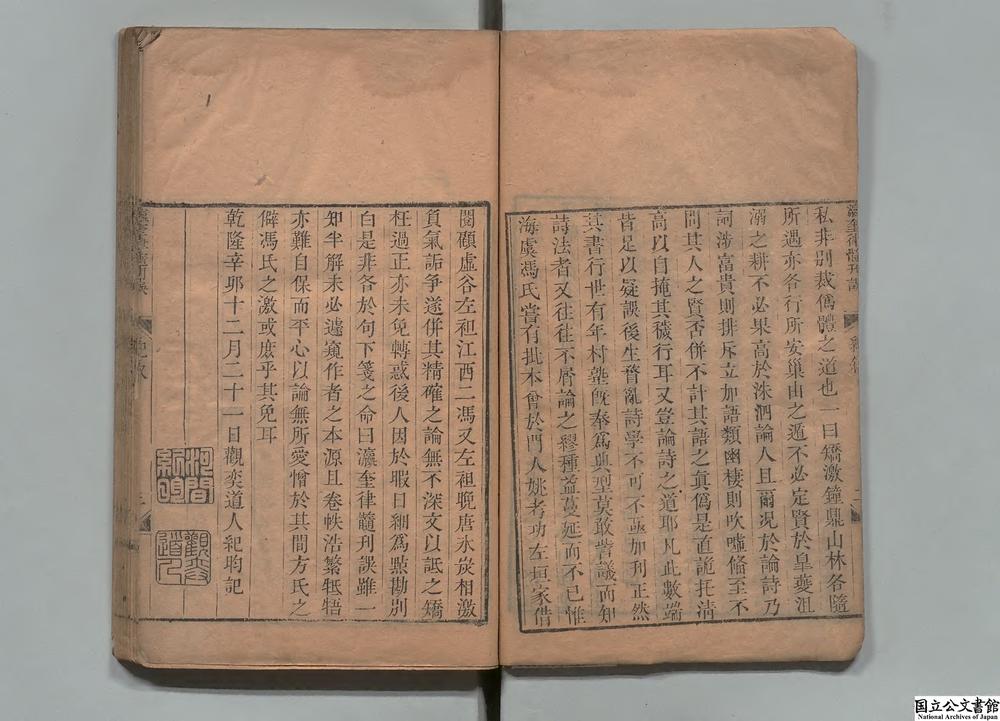 瀛奎律髓刊誤
私非別裁僞體之道也一曰矯激鐘鼎山林各隨
所遇亦各行所安巢由之遁不必定賢於皐夔沮
溺之耕不必果高於洙泗論人且爾况於論詩乃
詞涉富貴則排斥立加語類幽棲則吹噓備至不
問其人之賢否併不計其語之眞僞是直詭托淸
高以自掩其穢行耳又豈論詩之道耶凡此數端
皆足以疑誤後生瞀亂詩學不可不亟加刋正然
其書行世有年村塾旣奉爲典型莫敢訾議而知
詩法者又往往不屑論之繆種益蔓延而不已惟
海虞馮氏嘗有批本曾於門人姚考功左垣家借
閱顧虛谷左袒江西二馮又左袒晚唐氷炭相激
負氣詬爭遂併其精確之論無不深文以詆之矯
枉過正亦未免轉惑後人因於暇日細爲㸃勘別
白是非各於句下箋之命曰瀛奎律髓刋誤雖一
知半解未必遽窺作者之本源且卷帙浩繁牴牾
亦難自保而平心以論無所愛憎於其間方氏之
僻馮氏之激或庶乎其免耳
乾隆辛卯十二月二十一日觀奕道人紀昀記
河間
觀奕
道人
国立公文書館
National Archives of Japan